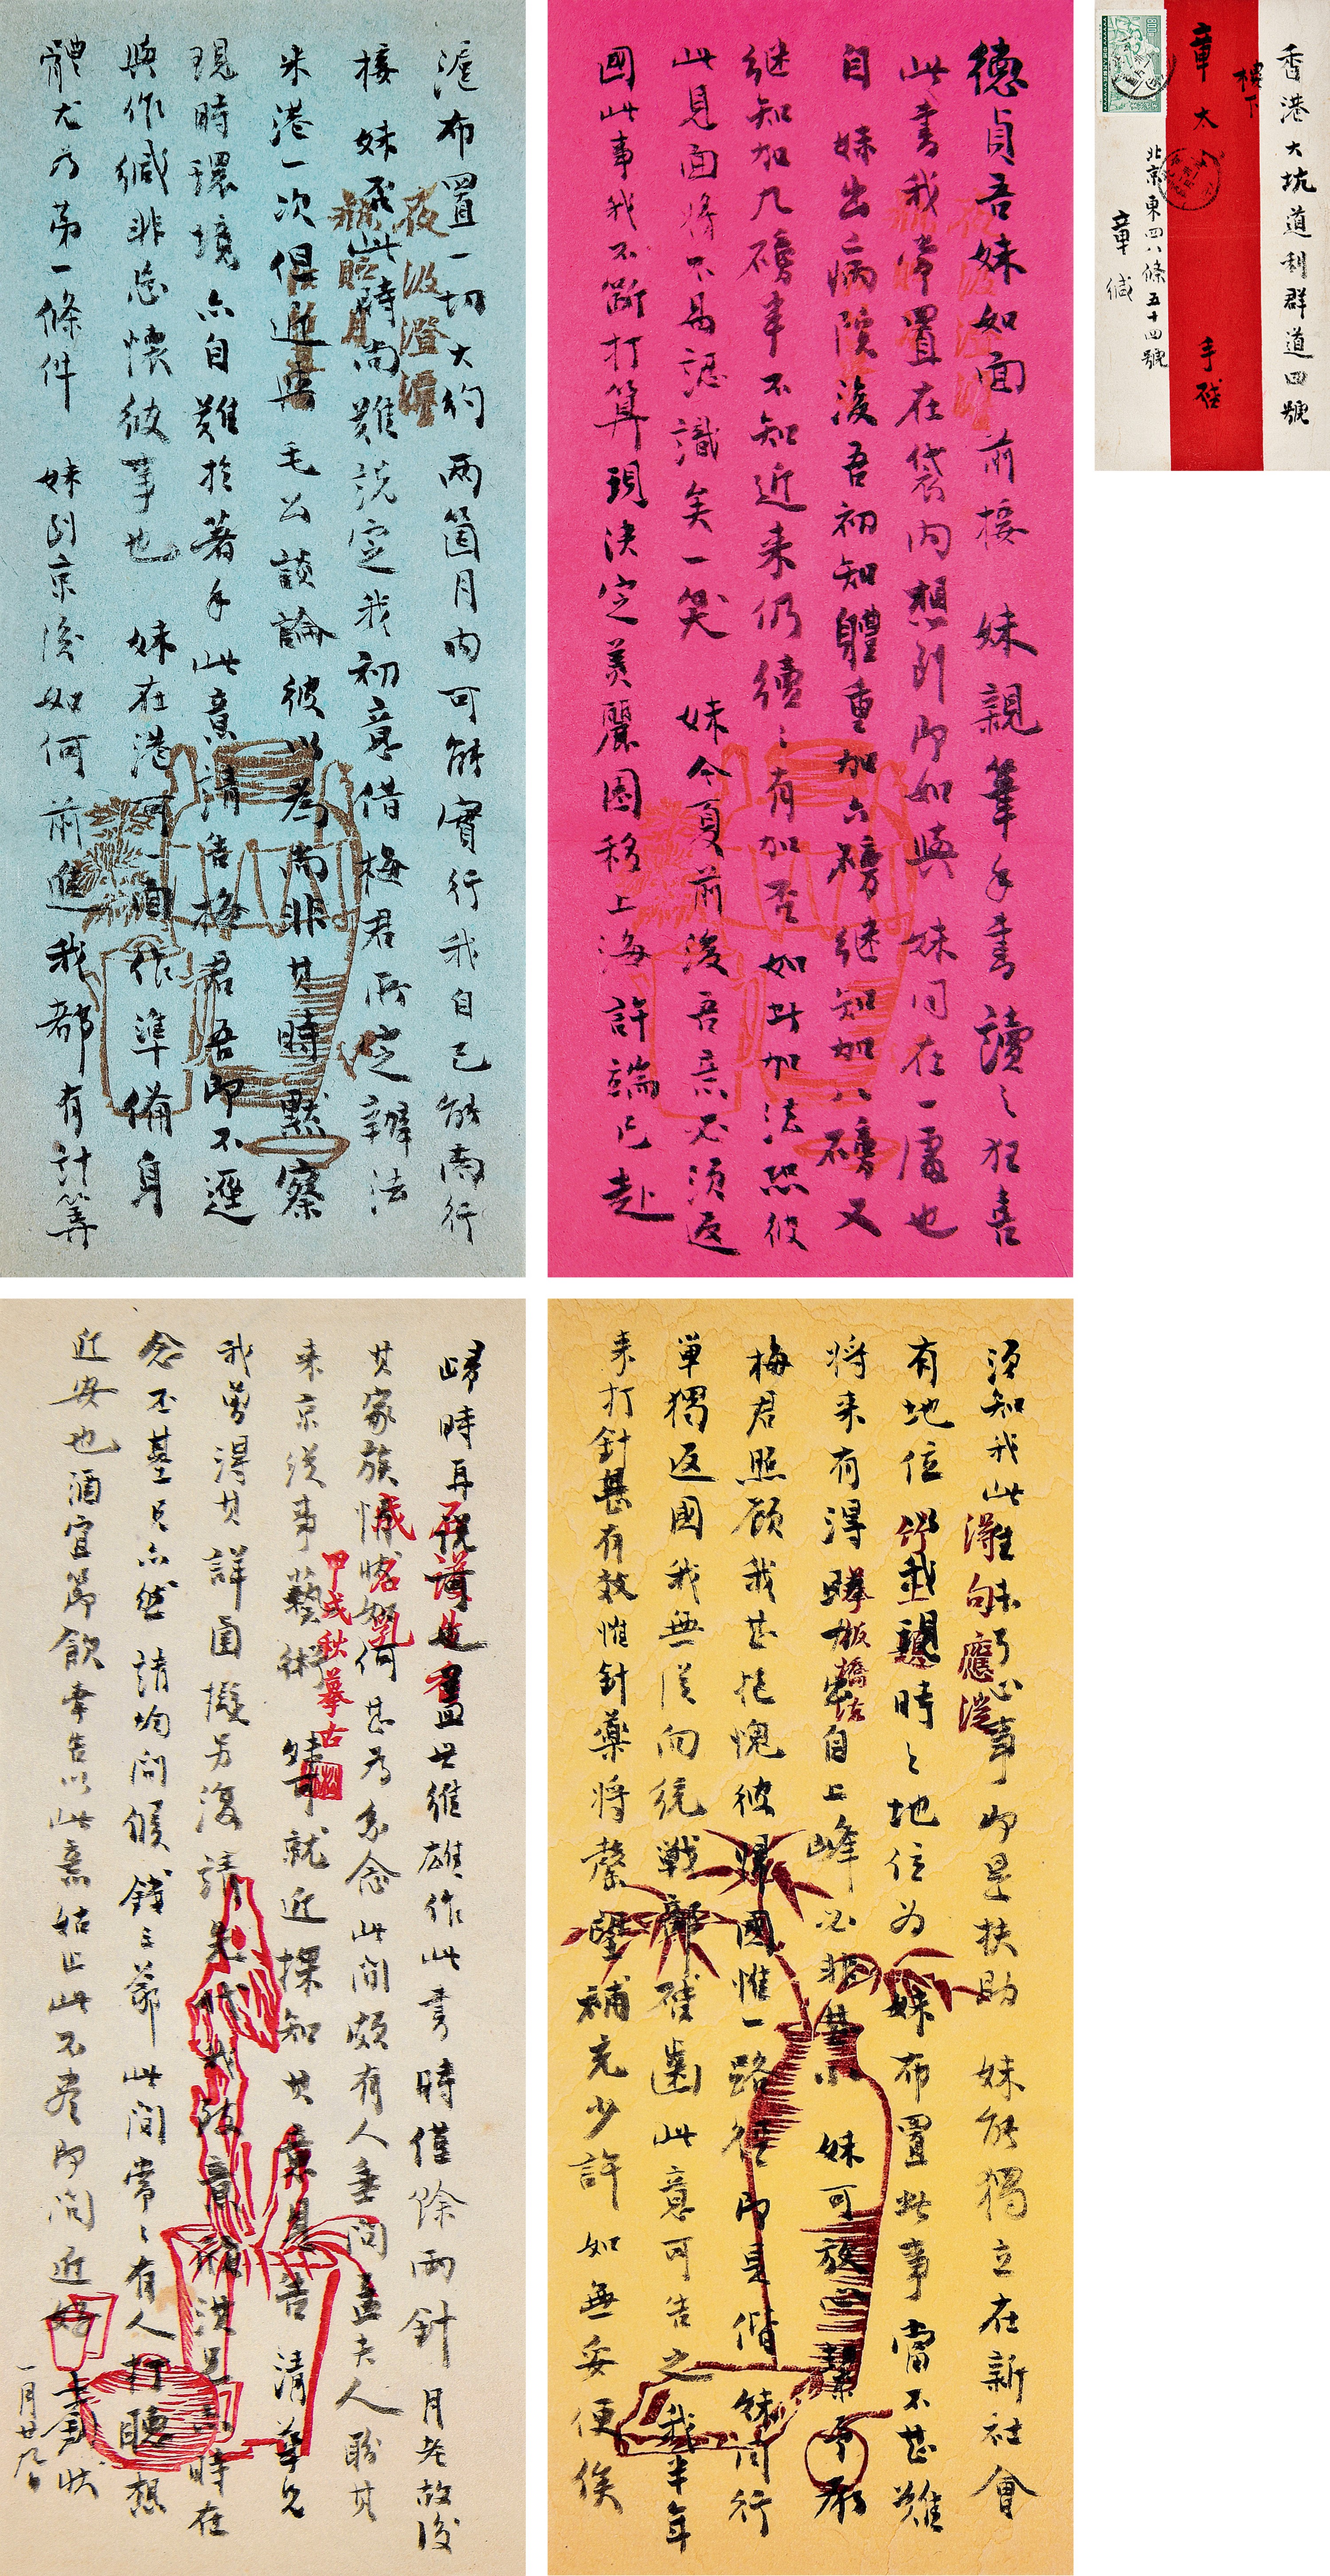 香港大坑道利群道四號
樓下
章太 手啓
北京東四八條五十四號
章緘
德貞吾妹如面 前接 妹親筆手書讀之狂喜
此書我常置在袋內想到即如與 妹同在一處也
自 妹出病院後吾初知體重加六磅繼知加八磅又
繼知加九磅半不知近來仍續續有加否如此加法恐彼
此見面將不易認識矣一笑 妹今夏前後吾意必須返
國此事我不斷打算現決定美麗園移上海許端已赴
滬布置一切大約兩箇月內可能實行我自己能南行
接 妹否此時尚難說定我初意借梅君所定辦法
來港一次但近與 毛公談論彼以為尚非其時默察
現時環境亦自難於著手此意請告梅君吾即不逕
與作緘非忘懷彼事也 妹在港可一面作準備身
體尤為第一條件 妹到京後如何前進我都有計算
夜波澄濯
須知我此生未了心事即是扶助 妹能獨立在新社會
有地位我親時時地位为 妹布置此事當不甚難
將來有得 自上峰必非甚小 妹可放
梅君照顧我甚抱愧彼歸國惟一路徑即是偕 妹同行
單獨返國我無從向統戰部啓齒此意可告之我半年
來打針甚有效惟針藥將罄望補充少許如無妥便俟
得句應從
板橋法
歸時再說 世維雄作此書時僅餘兩針 月老故後
其家族情 如何甚為系念此間頗有人垂問孟夫人盼其
來京從事藝術 妹可就近探知其意見告 清華兄
我曾得其詳函擬另復請 代我致意 時在
念不基兄亦然 請均問候錢三爺此間常常有人打聽想
近安也酒宜節飲幸告以此意姑止此不盡即問近好
一月廿九日
甲戌秋摹古